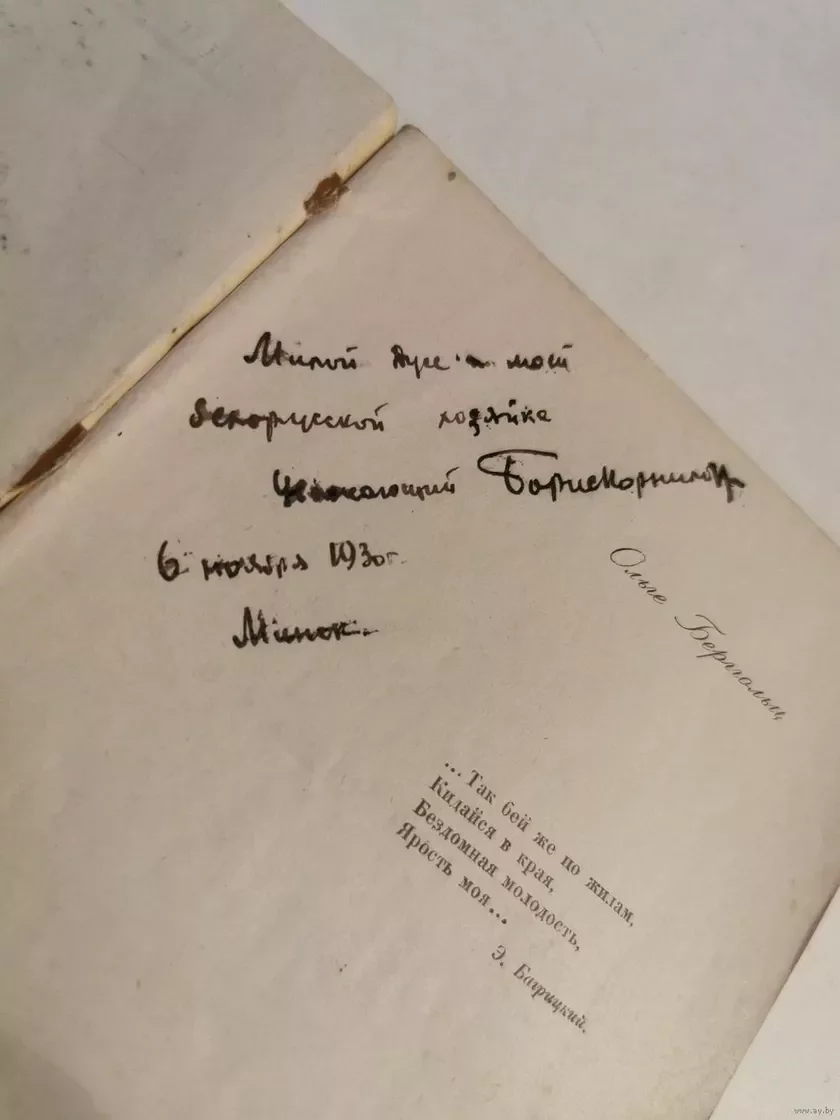 Милой Дусе - моей
белорусской хозяйке
Уважающий Борис Корнилов
6 ноября 1930 г.
Минск.
Ольге Берггольц
...Так бей же по жилам,
Кидайся в края,
Бездомная молодость,
Ярость моя...
Э. Багрицкий.
www.ay.by